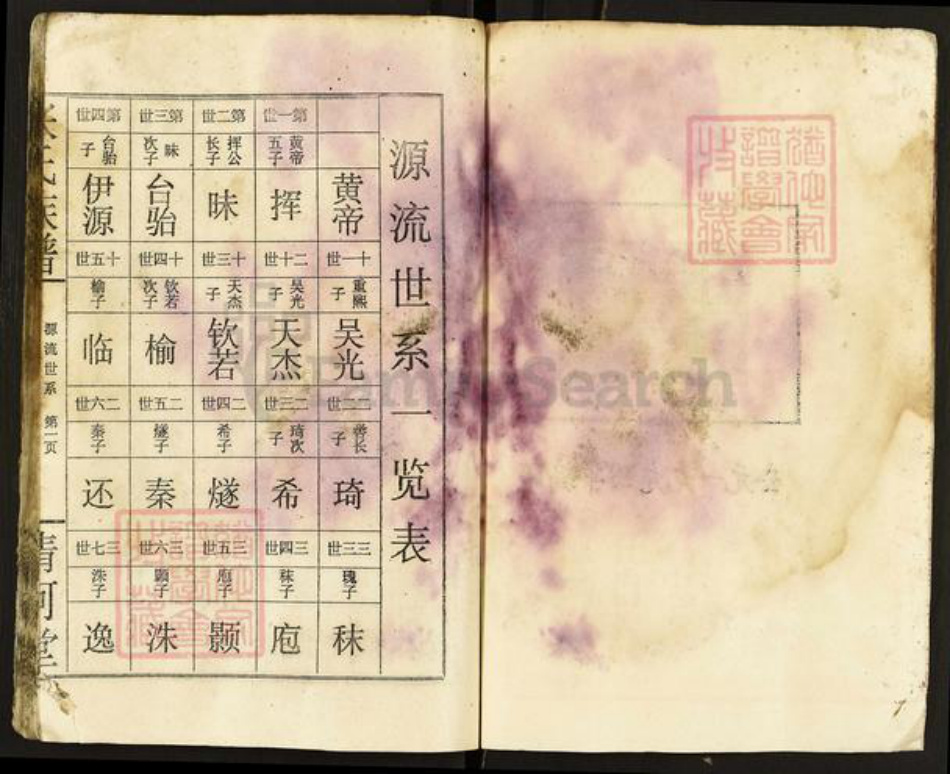 源流世系一览表
黄帝
第一世
黄帝五子
挥
第二世
挥公长子
昧
第三世
昧次子
台骀
第四世
台骀子
伊源
十一世
重熙子
吴光
十二世
吴光子
天杰
十三世
天杰子
钦若
十四世
钦若次子
榆
十五世
榆子
临
二二世
长
琦
二三世
琦次子
希
二四世
希子
燧
二五世
燧子
秦
二六世
秦子
还
三三世
瑰子
秣
三四世
秣子
庖
三五世
庖子
颢
三六世
颢子
洙
三七世
洙子
逸
张氏族谱
源流世系
第一页
清河堂
谱学会
收藏
FamilySearch